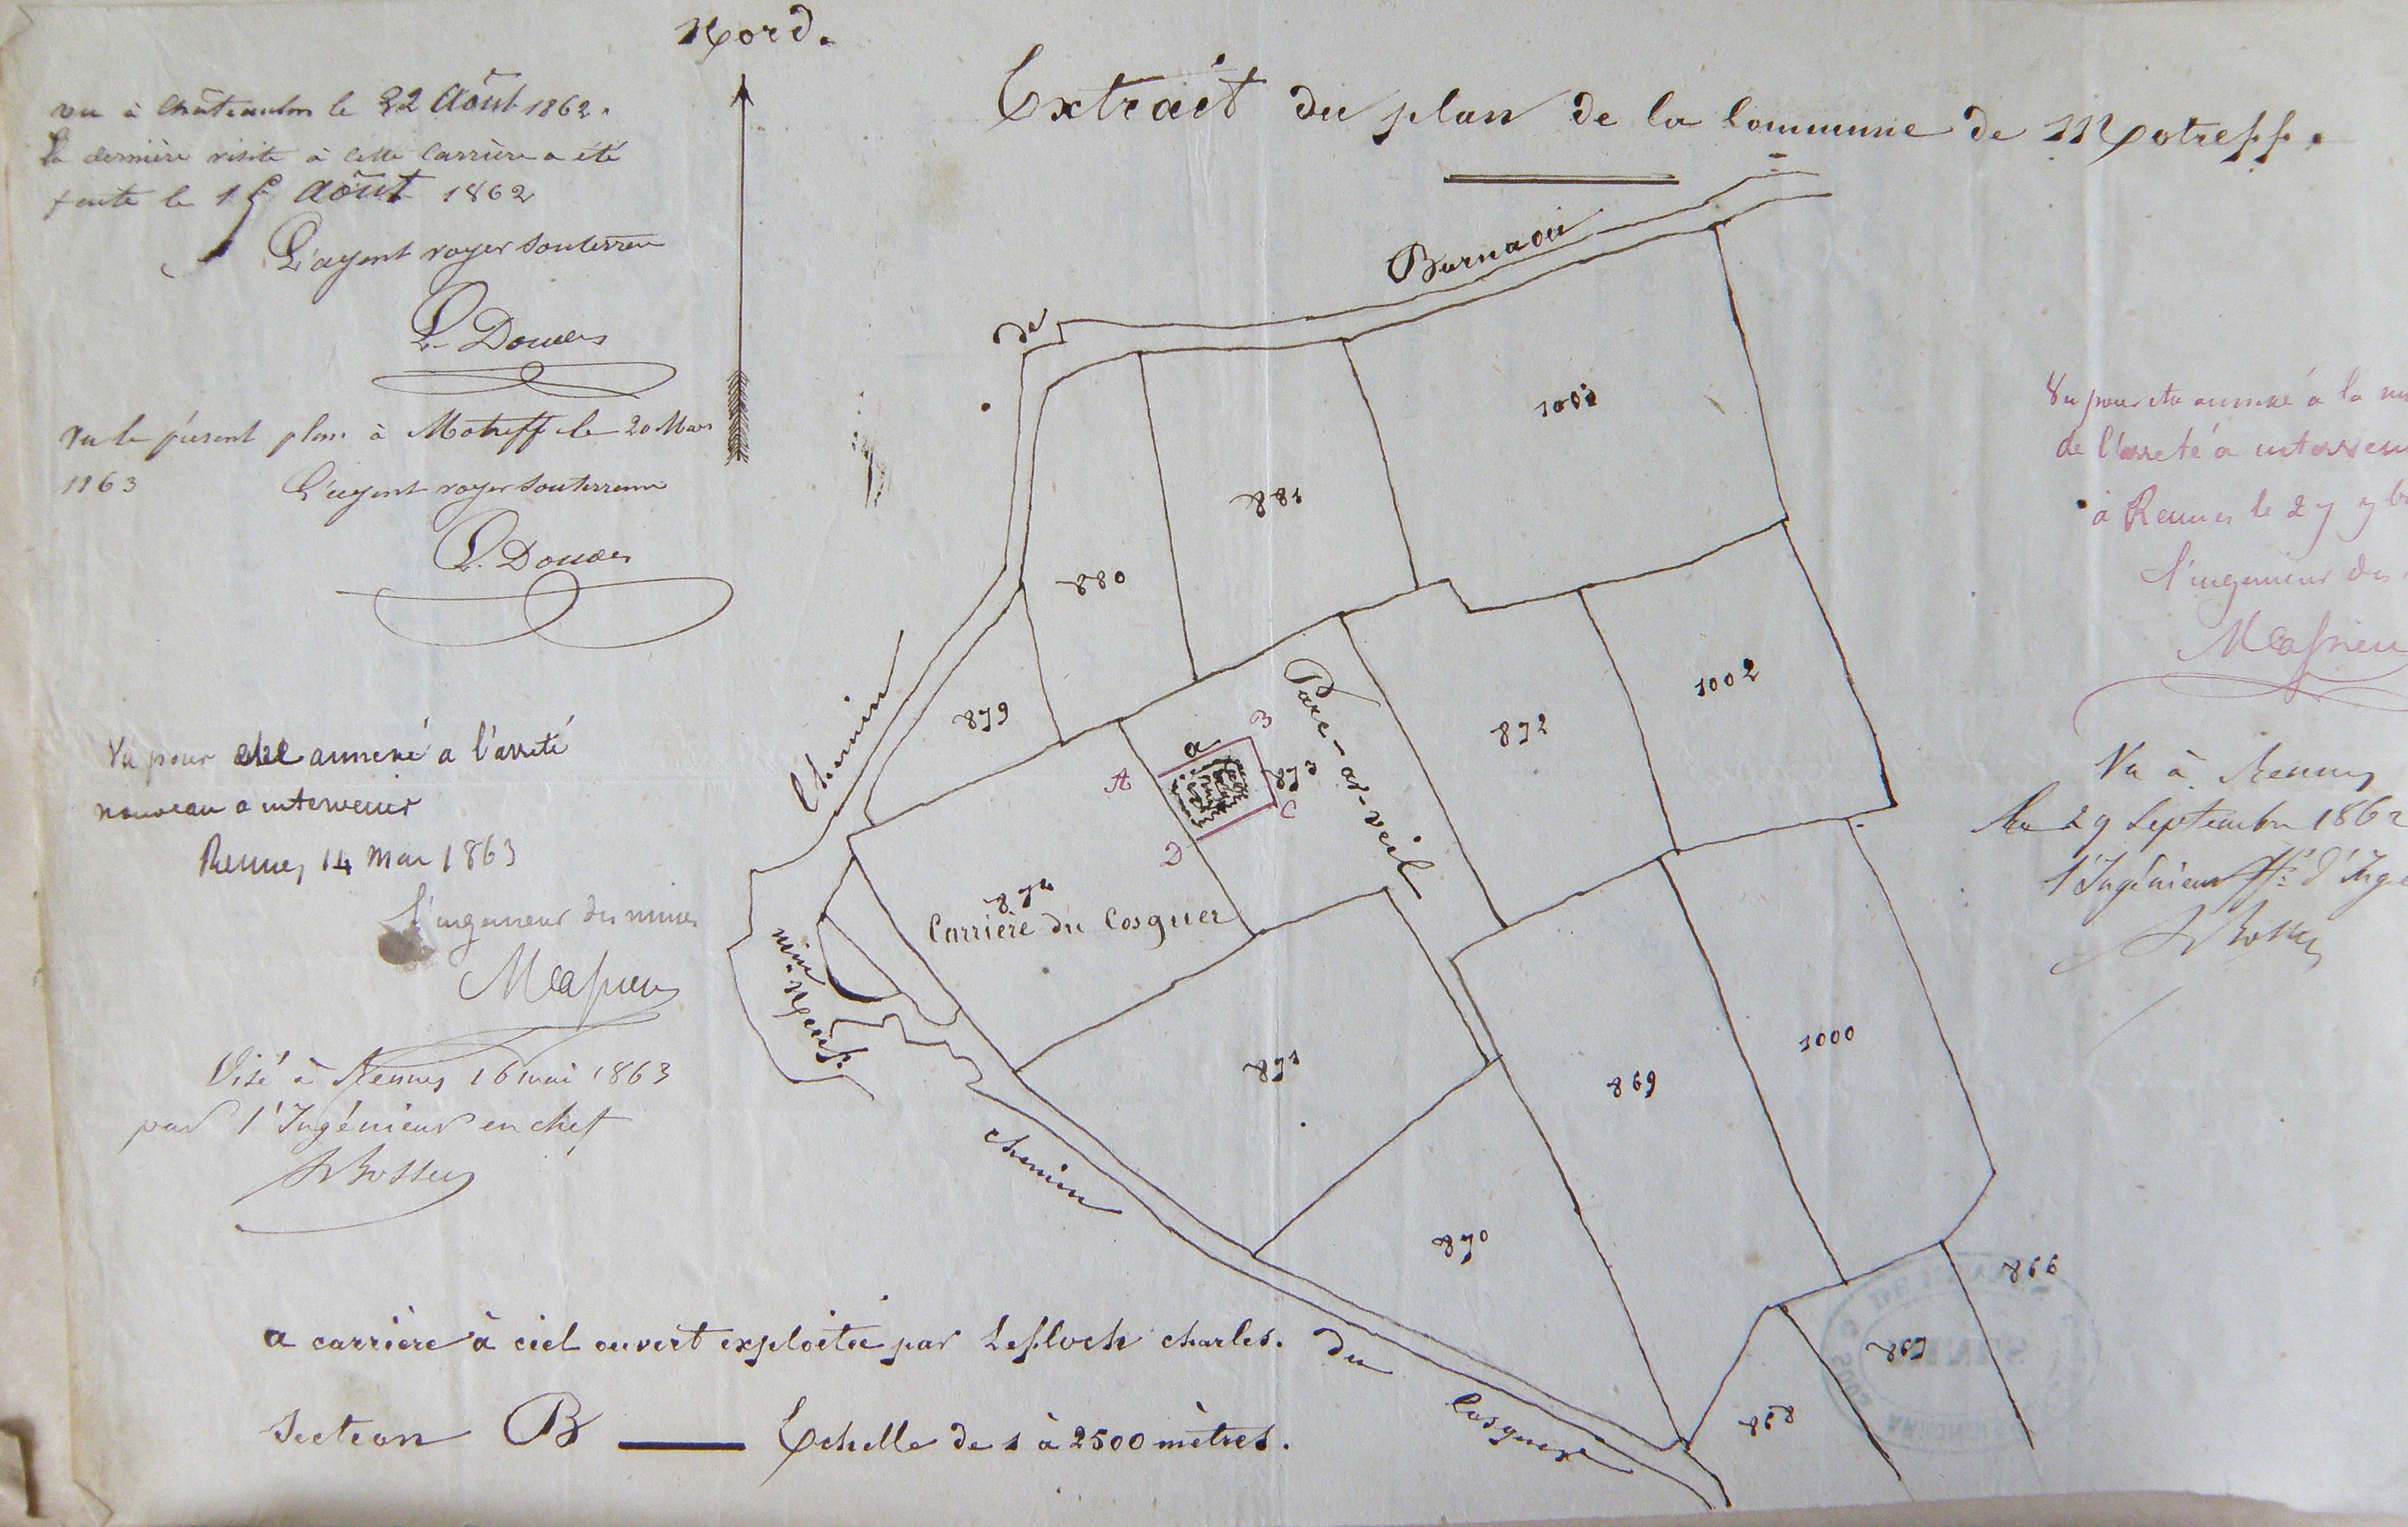 Nord.
Extrait du plan de la Commune de Motreff.
vu à Châteaulin le 22 Août 1862.
La dernière visite à cette Carrière a été
faite le 1 Août 1862
L'agent voyer souterrain
L. Douces
Vu le présent plan à Motreff le 20 Mars
1863
L'agent voyer souterrain
L. Douces
Vu pour être annexé a l'arrêté
nouveau a intervenir
Rennes, 14 Mai 1863
L'ingenieur des mines
Massieu
Visé à Rennes 16 mai 1863
par l'Ingénieur en chef
Vu pour être annexé à la
de l'arreté à intervenir
à Rennes le 27
l'ingenieur des
Massieu
Vu à Rennes
Le 29 Septembre 1862
l'Ingénieur
Chemin
de
Burnaou
1001
881
880
879
1002
872
Parc-ar-veil
873
a
A
B
C
D
874
Carrière du Cosquer
871
869
1000
870
866
867
868
chemin
du
Cosquer
a carrière à ciel ouvert exploitée par Lefloch charles.
Section B — Echelle de 1 à 2500 mètres.